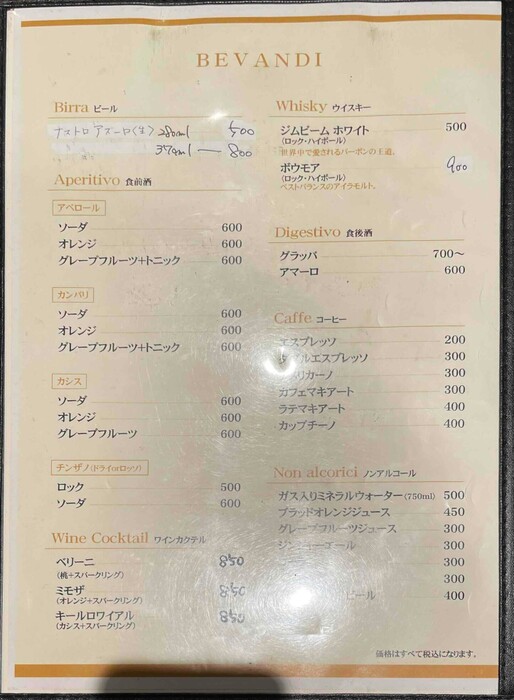 BEVANDI
Birra ビール
ナストロ アズーロ(生) 280ml 500
374ml — 800
Aperitivo 食前酒
アペロール
ソーダ 600
オレンジ 600
グレープフルーツ+トニック 600
カンパリ
ソーダ 600
オレンジ 600
グレープフルーツ+トニック 600
カシス
ソーダ 600
オレンジ 600
グレープフルーツ 600
チンザノ(ドライorロッソ)
ロック 500
ソーダ 500
Wine Cocktail ワインカクテル
ベリーニ 850
(桃+スパークリング)
ミモザ 850
(オレンジ+スパークリング)
キールロワイアル 850
(カシス+スパークリング)
Whisky ウイスキー
ジムビーム ホワイト 500
(ロック・ハイボール)
世界中で愛されるバーボンの王道。
ボウモア 900
(ロック・ハイボール)
ベストバランスのアイラモルト。
Digestivo 食後酒
グラッパ 700〜
アマーロ 600
Caffe コーヒー
エスプレッソ 200
エスプレッソ 300
リカーノ 300
カフェマキアート 300
ラテマキアート 400
カップチーノ 400
Non alcorici ノンアルコール
ガス入りミネラルウォーター(750ml) 500
ブラッドオレンジジュース 450
グレープフルーツジュース 300
300
300
ビール 400
価格はすべて税込になります。